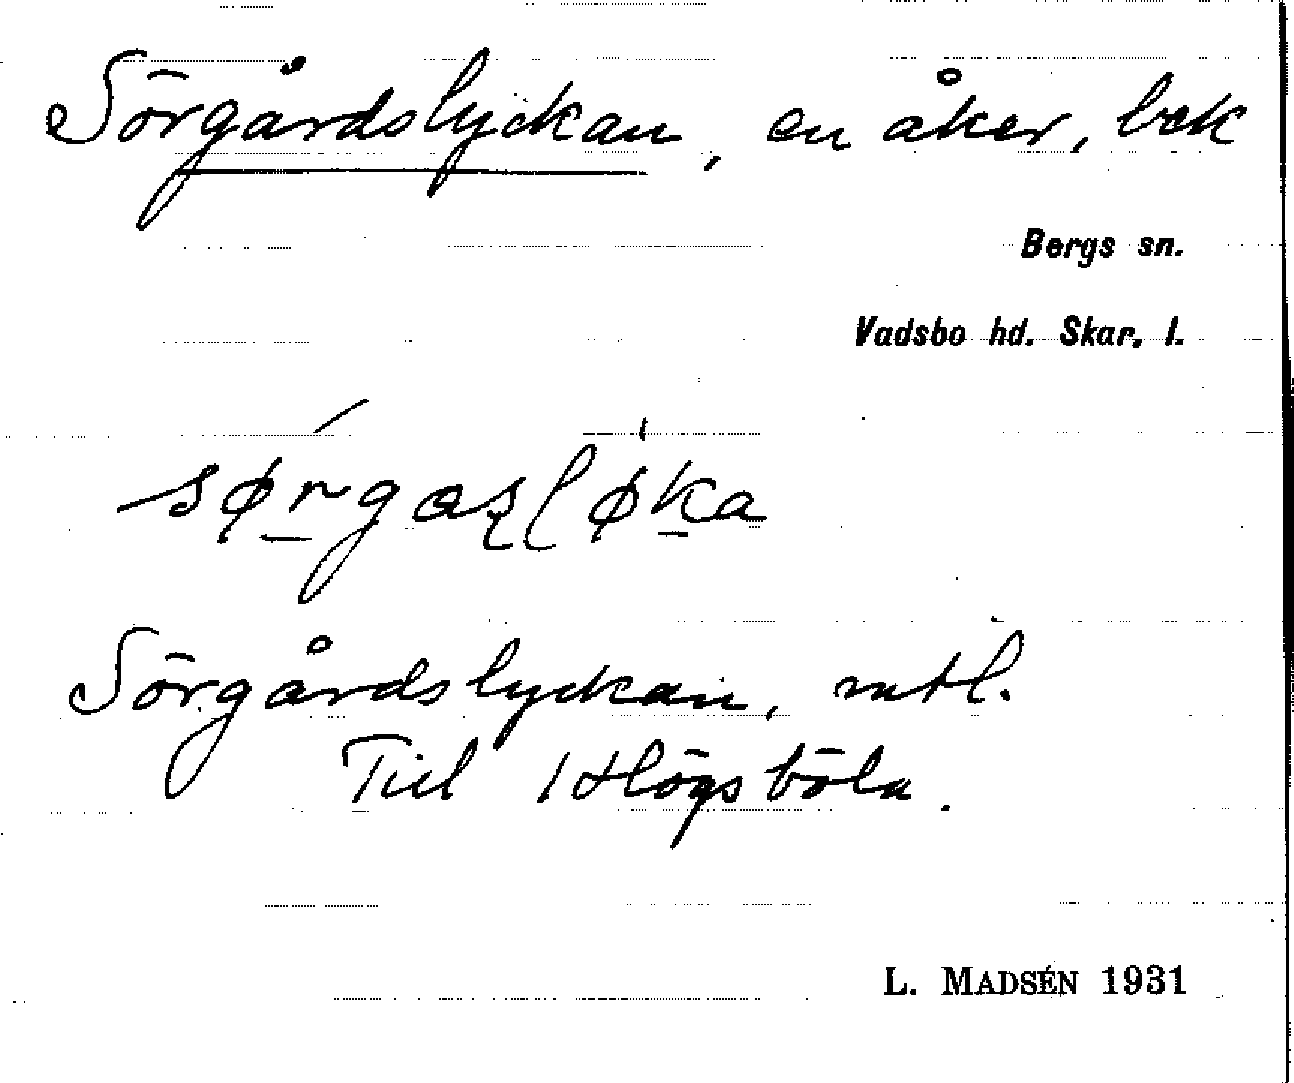 Sörgårdslyckan, en åker, bek
Bergs sn.
Vadsbo hd. Skar. l.
sørgasløka
Sörgårdslyckan, mtl.
Till Högsböla.
L. MADSÉN 1931